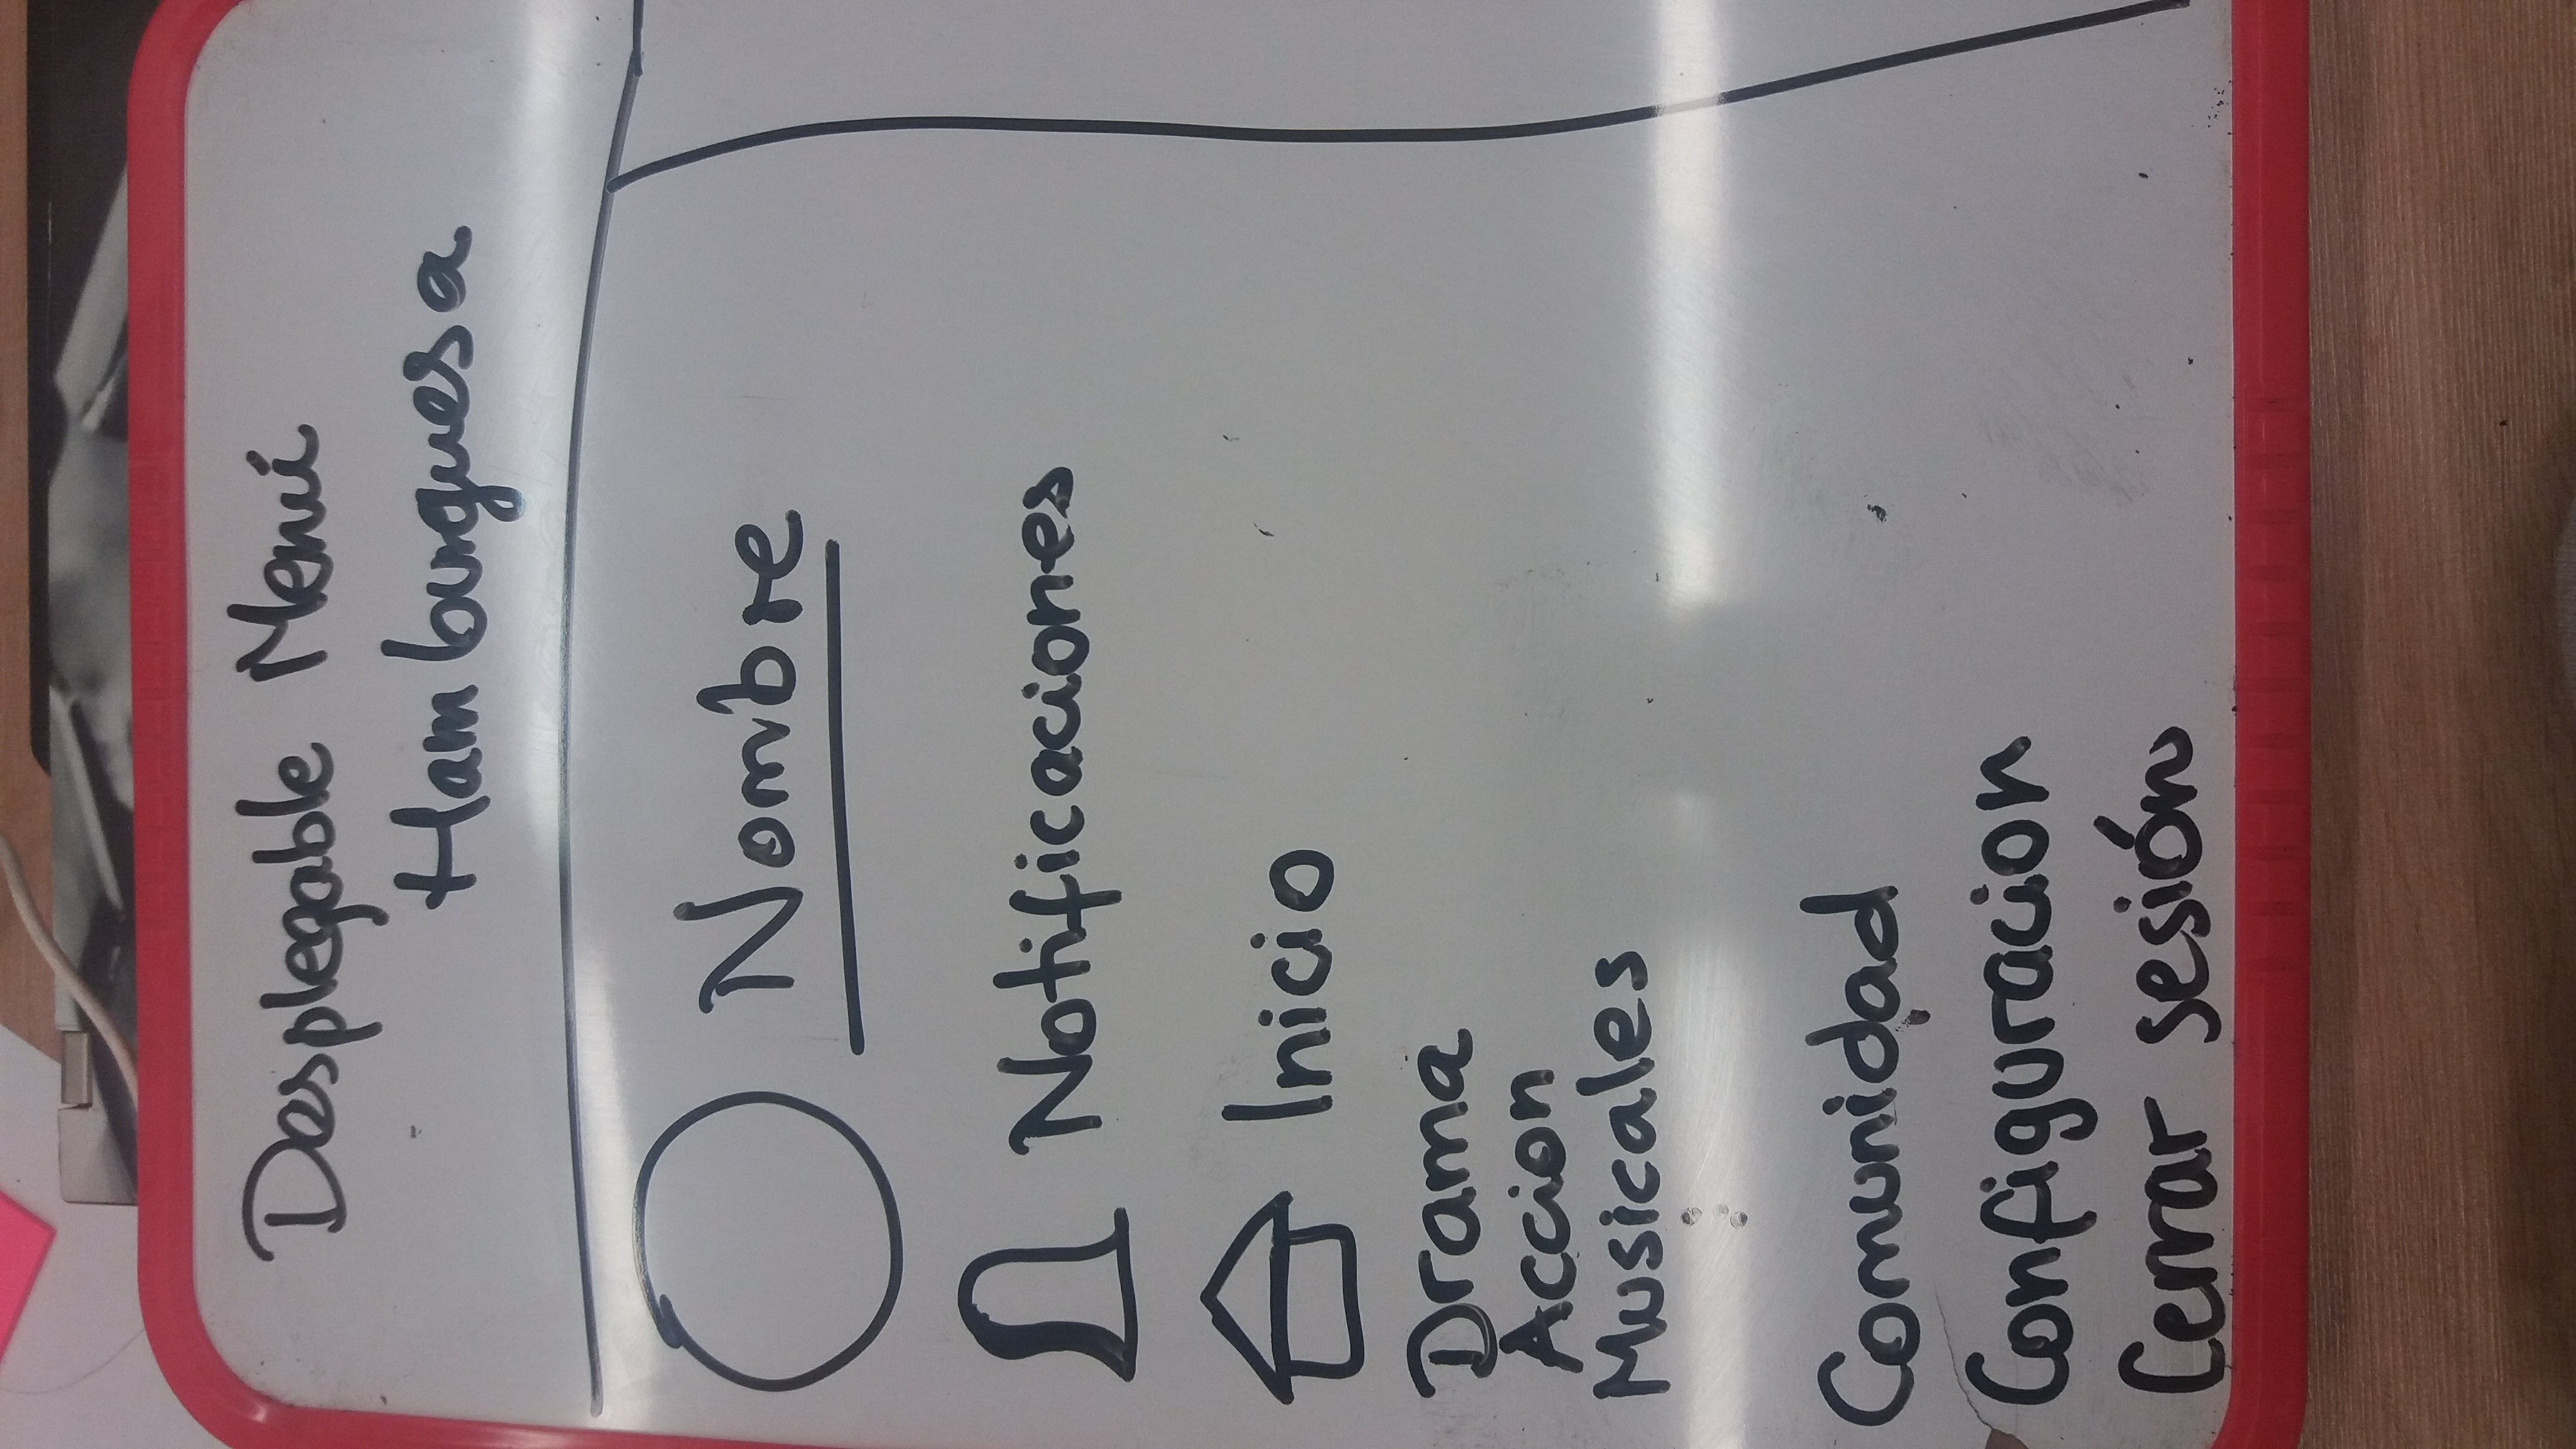 Desplegable Menú
Hamburguesa
Nombre
Notificaciones
Inicio
Drama
Accion
Musicales
Comunidad
Configuracion
Cerrar sesión